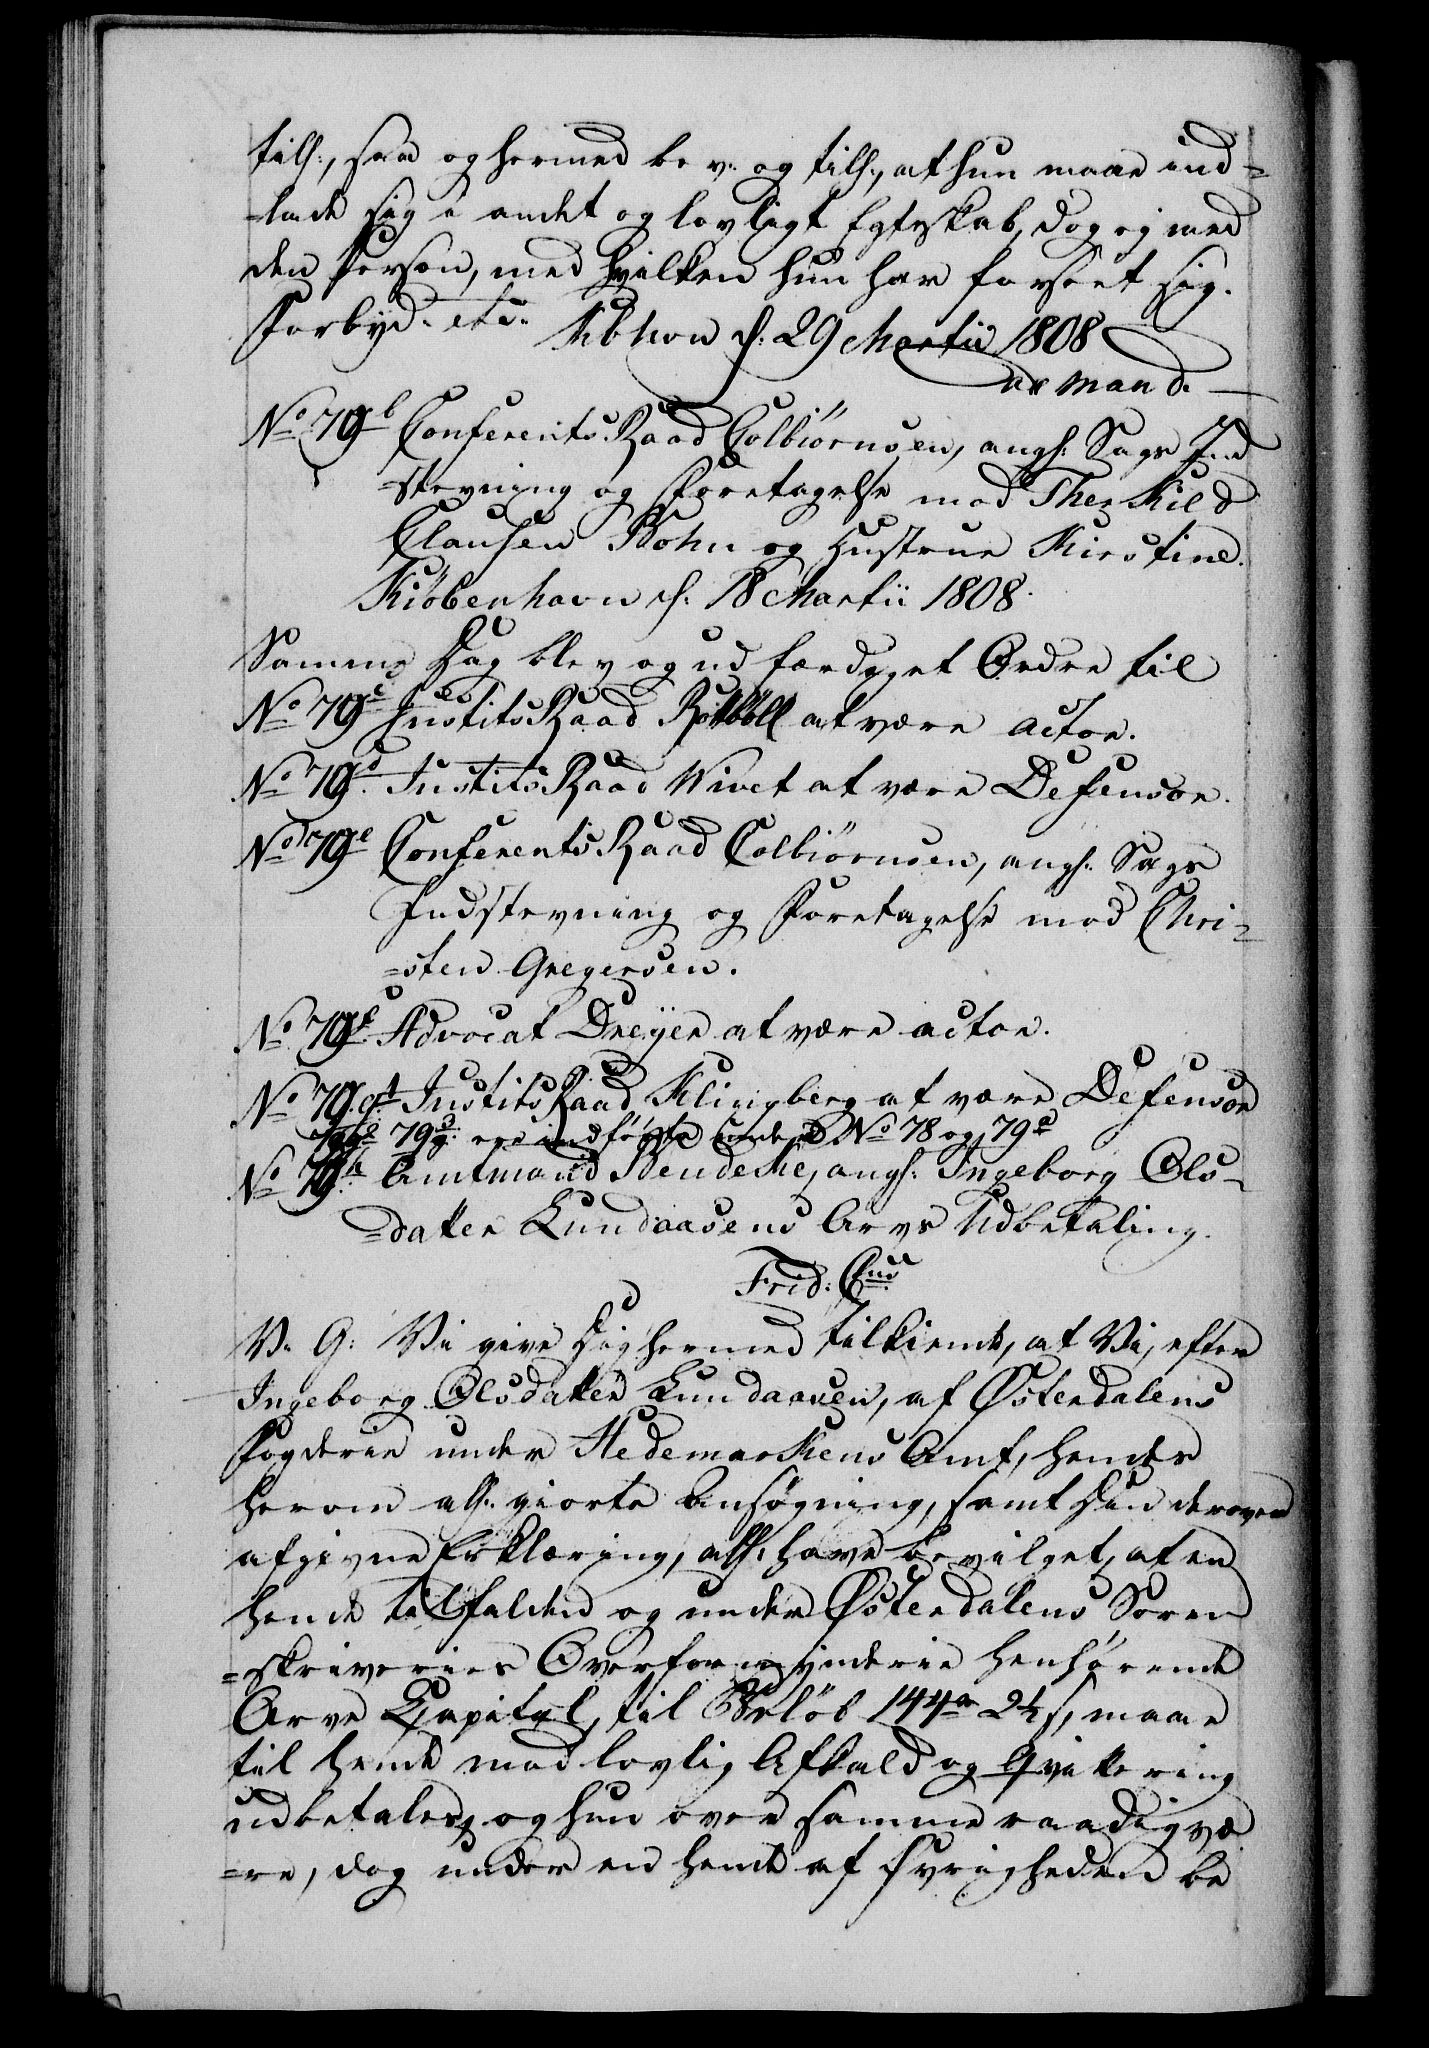 till:, saa og hermed bev: og till:, at hun maae ind=
=lade sig i andet og lovligt Egteskab, dog ej med
den Person, med hvilken hun har forseet sig.
Forbyd: etc. Kbhvn d: 29 Martii 1808
ar mand.
No 79b Conferents Raad Colbiørnsen, angl: Sags Ind
=stevning og Foretagelse mod Therkild
Clausen Bohn og Hustrue Kirstine.
Kiöbenhavn d: 18 Martii 1808.
Samme Dag blev og udfærdiget Ordre til
No 79c Justits Raad Rottböll at være Actor.
No 79d. Justits Raad Wivet at være Defensor.
No 79e Conferents Raad Colbiörnsen, angl: Sags
Indstevning og Foretagelse mod Chri=
=sten Gregersen.
No 79f Advocat Dreyer at være Actor.
No 79.g. Justits Raad Klingberg at være Defensor
79g. ere indförte under No 78 og 79a
No 79h. Amtmand Bendeke, angl: Ingeborg Ols=
=datter Lundaasens Arvs Udbetaling.
Frid: Cus.
V. G: Vi give Dig hermed tilkiende, at Vi, efter
Ingeborg Olsdatter Lundaasen, af Østerdalens
Fogderie under Hedemarkens Amt, hendes
herom all: giorte Ansøgning, samt Din derover
afgivne Erklæring, all: have bevilget, at en
hende tilfalden og under Østerdalens Soren
=skriveries Overformynderie henhørende
Arve Capital, til Beløb 144 r 2½ s, maae
til hende mod lovlig Afkald og Qvittering
udbetales, og hun over samme raadig væ
=re, dog under en hende af Øvrigheden be